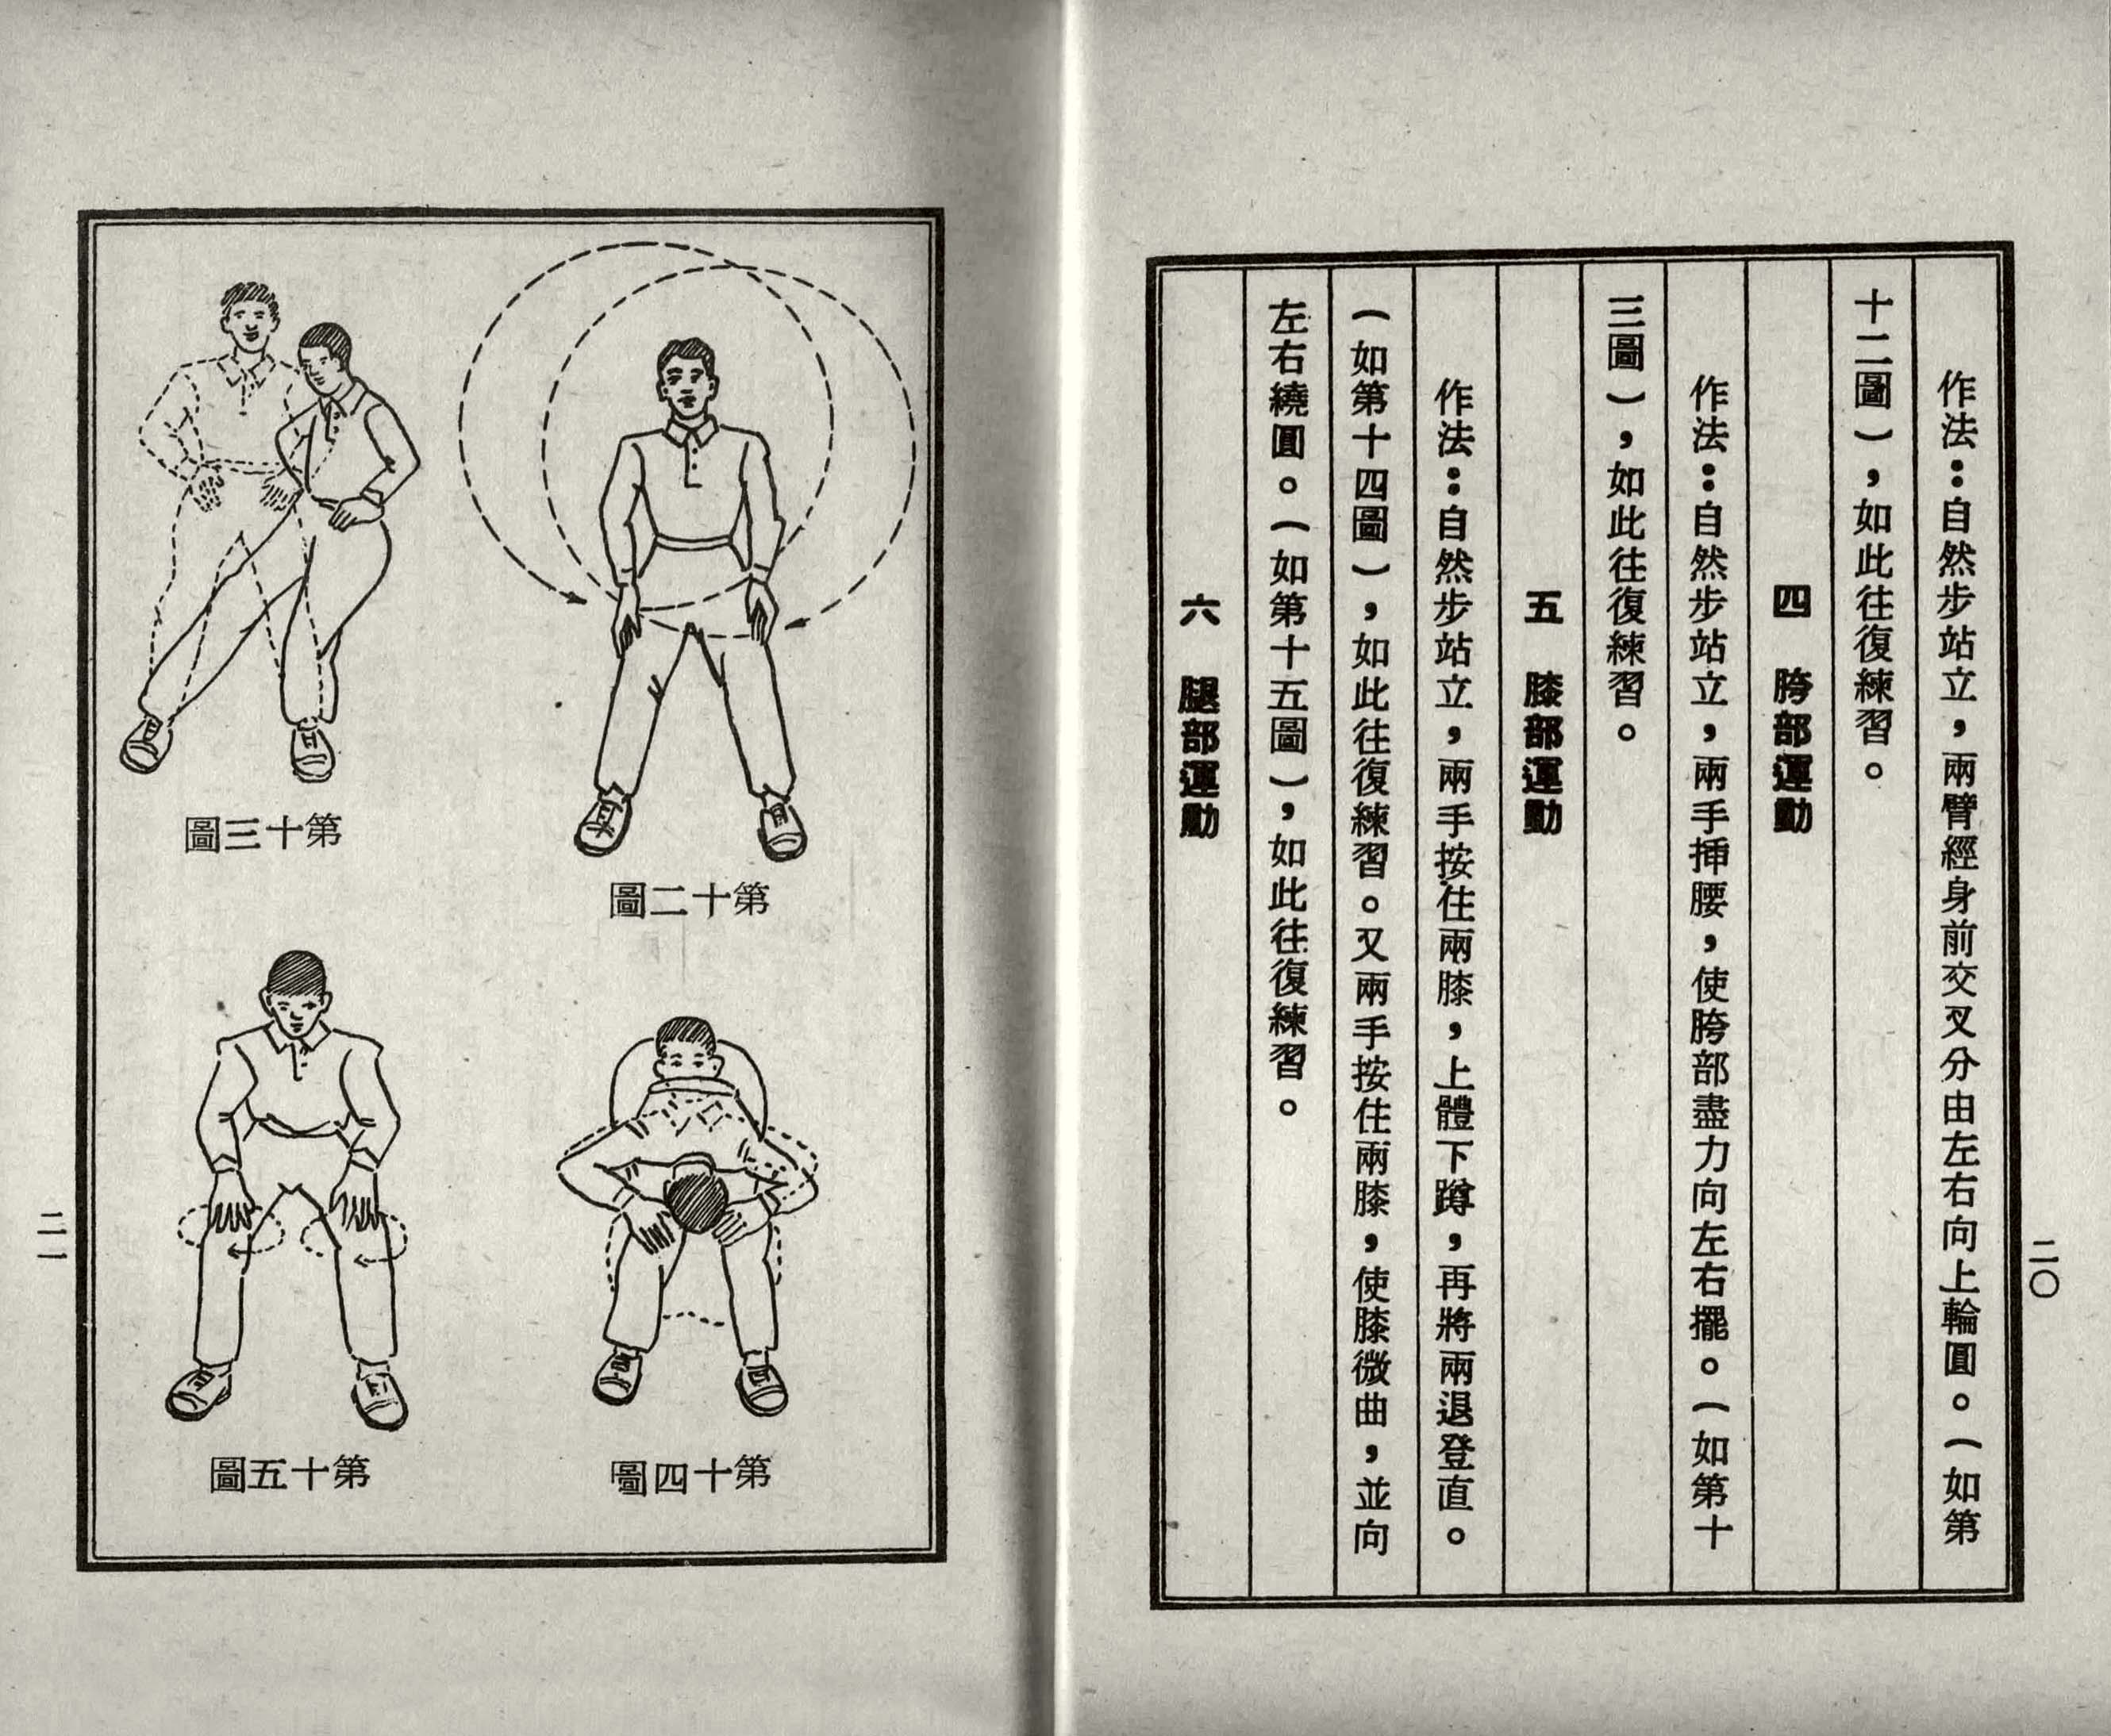 作法：自然步站立，兩臂經身前交叉分由左右向上輪圓。（如第
十二圖），如此往復練習。
四　胯部運動
作法：自然步站立，兩手揷腰，使胯部盡力向左右擺。（如第十
三圖），如此往復練習。
五　膝部運動
作法：自然步站立，兩手按住兩膝，上體下蹲，再將兩退登直。
（如第十四圖），如此往復練習。又兩手按住兩膝，使膝微曲，並向
左右繞圓。（如第十五圖），如此往復練習。
六　腿部運動
二〇
第十二圖
第十三圖
第十四圖
第十五圖
二一